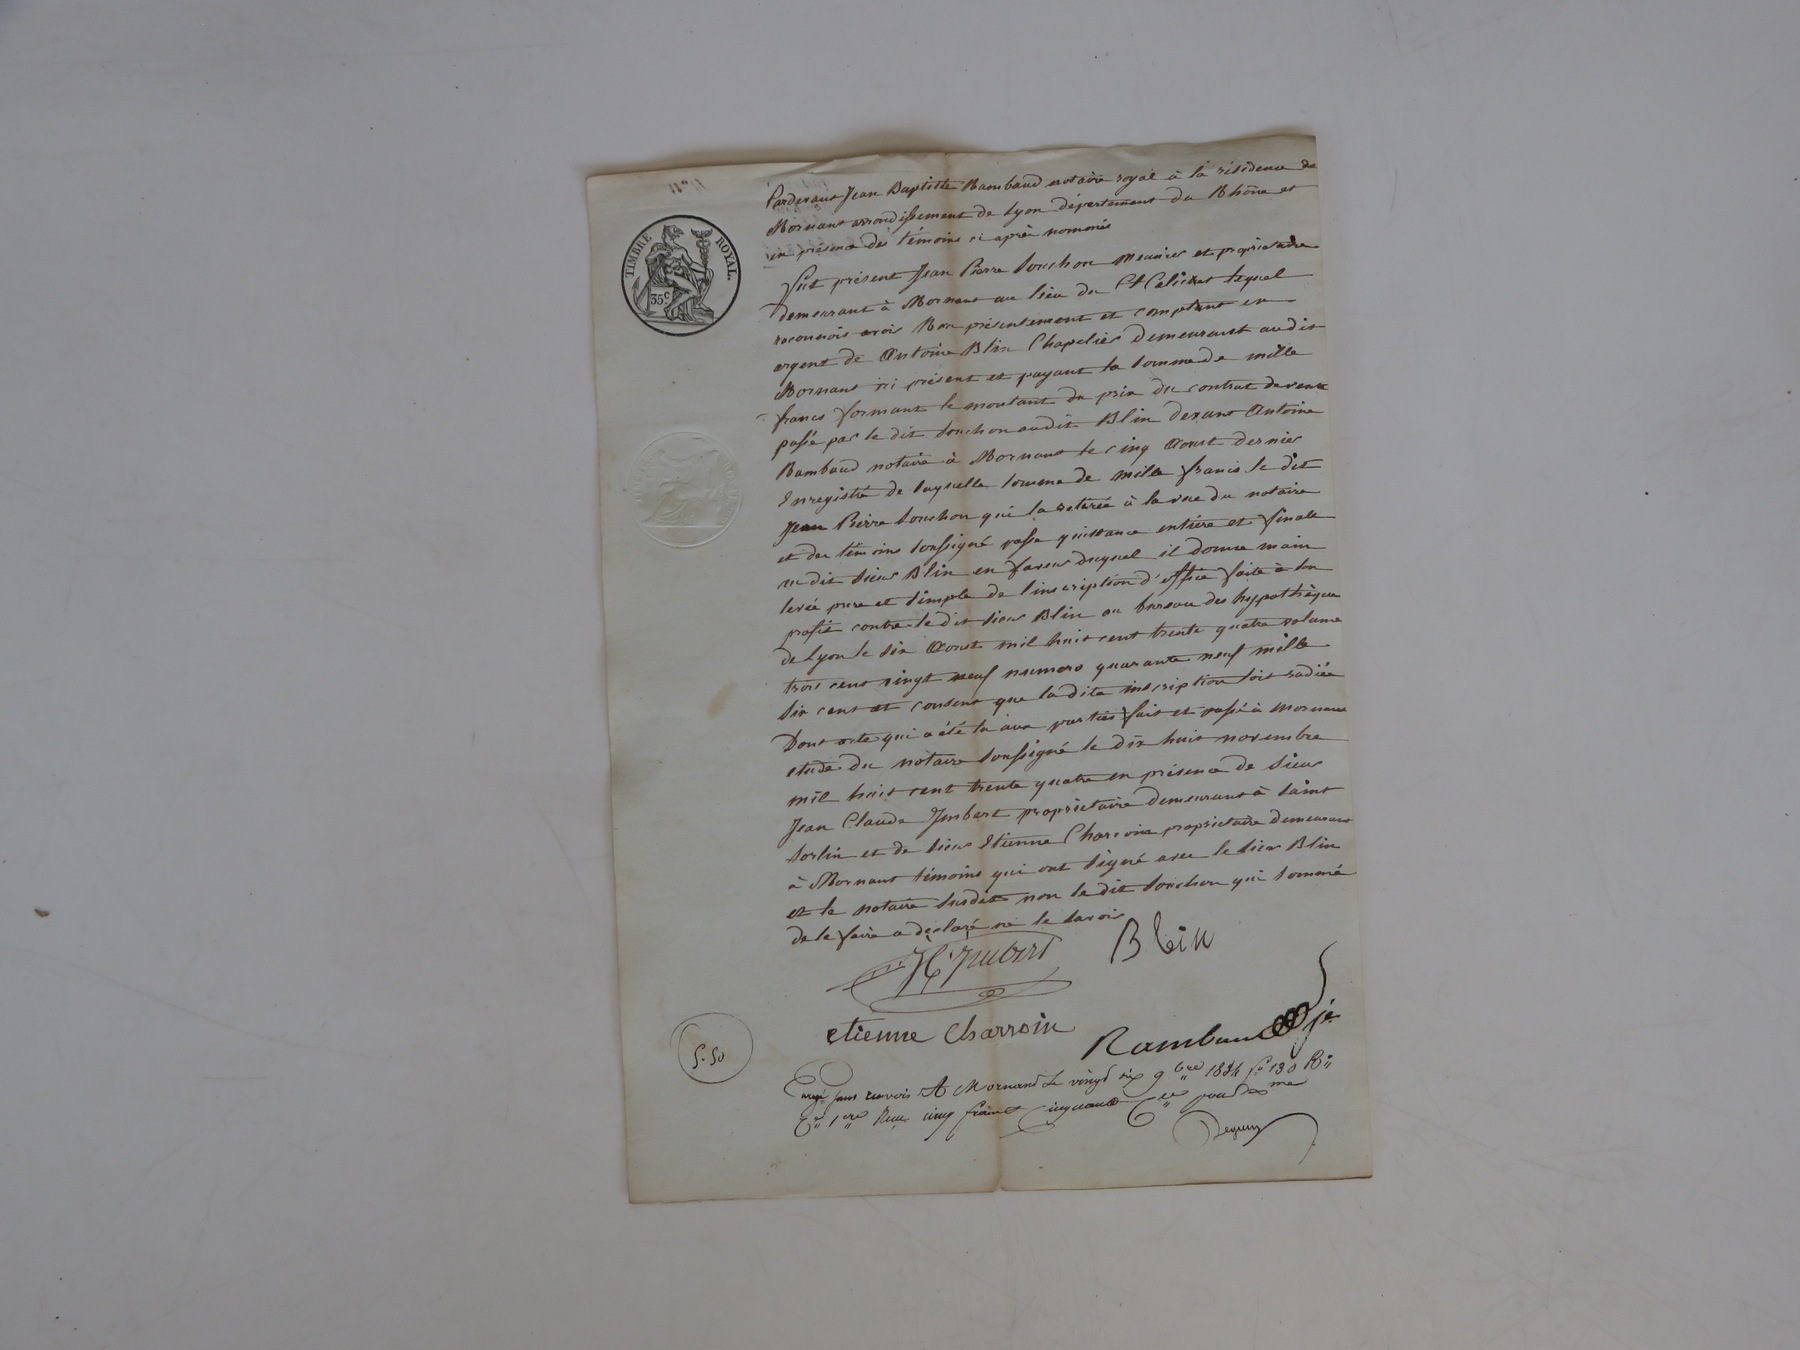 TIMBRE ROYAL.
35c
Pardevant Jean Baptiste Rambaud notaire royal à la résidence de
Mornant arrondissement de Lyon département du Rhône et
en présence des témoins ci après nommés
fut présent Jean Pierre Souchon meunier et propriétaire
demeurant à Mornant au lieu du lequel
reconnois avoir Reçu présentement et comptant en
argent de Antoine Blin Chapelier demeurant audit
Mornant ici présent et payant la somme de mille
francs formant le montant du prix du contrat de vente
passé par le dit Souchon audit Blin devant Antoine
Rambaud notaire à Mornant le cinq Aoust dernier
Enregistré de laquelle somme de mille francs le dit
Jean Pierre Souchon qui la retirée à la vue du notaire
et des témoins soussigné passe quittance entière et finale
au dit sieur Blin en faveur duquel il donne main
levée pure et simple de l'inscription d'office faite à son
profit contre le dit sieur Blin au bureau des hypothèque
de Lyon le six Aoust mil huit cent trente quatre volume
trois cent vingt neuf numero quarante neuf mille
six cent et consent que la dite inscription soit radiée
Dont acte qui a été lu aux parties fait et passé à Mornant
etude du notaire soussigné le dix huit novembre
mil huit cent trente quatre en présence de sieur
Jean Claude Imbert propriétaire demeurant à Saint
Sorlin et de sieur Etienne Charroin propriétaire demeurant
à Mornant témoins qui ont signé avec le sieur Blin
et le notaire susdit non le dit Souchon qui sommé
de le faire a déclaré ne le savoir
Imbert Blin
etienne Charroin
Rambaud
5.50
Enrgé sans renvois A Mornant Le vingt six 9bre 1834 fo 130 Ro
Ce 1ere Reçu cinq francs cinquante Ces pour dixme